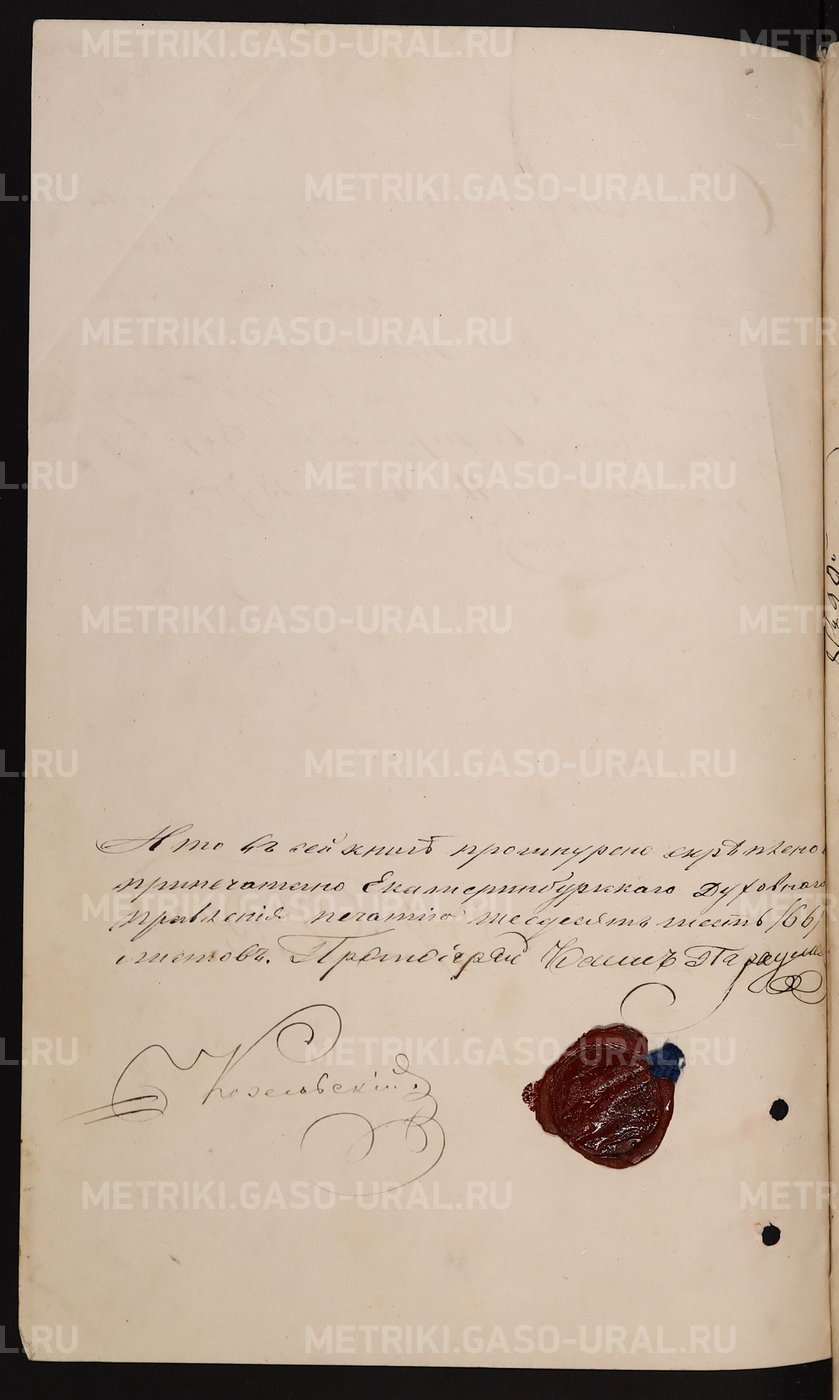 METRIKI.GASO-URAL.RU
Что въ сей книгѣ прошнуровано скрѣплено
припечатано Екатеринбургскаго Духовнаго
правленія печатію шесдесятъ шесть /66/
листовъ. Протоіерей
Козельскій.